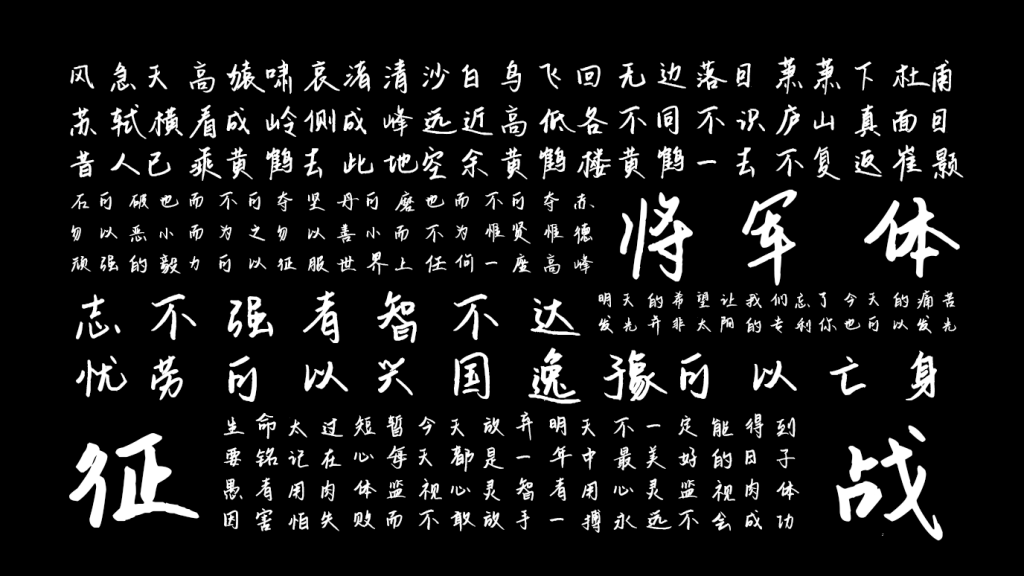 风急天高猿啸哀渚清沙白鸟飞回无边落日萧萧下杜甫
苏轼横看成岭侧成峰远近高低各不同不识庐山真面目
昔人已乘黄鹤去此地空余黄鹤楼黄鹤一去不复返崔颢
石可破也而不可夺坚丹可磨也而不可夺赤
勿以恶小而为之勿以善小而不为惟贤惟德
顽强的毅力可以征服世界上任何一座高峰
将军体
志不强者智不达
明天的希望让我们忘了今天的痛苦
发光并非太阳的专利你也可以发光
忧劳可以兴国逸豫可以亡身
征
生命太过短暂今天放弃明天不一定能得到
要铭记在心每天都是一年中最美好的日子
愚者用肉体监视心灵智者用心灵监视肉体
因害怕失败而不敢放手一搏永远不会成功
战